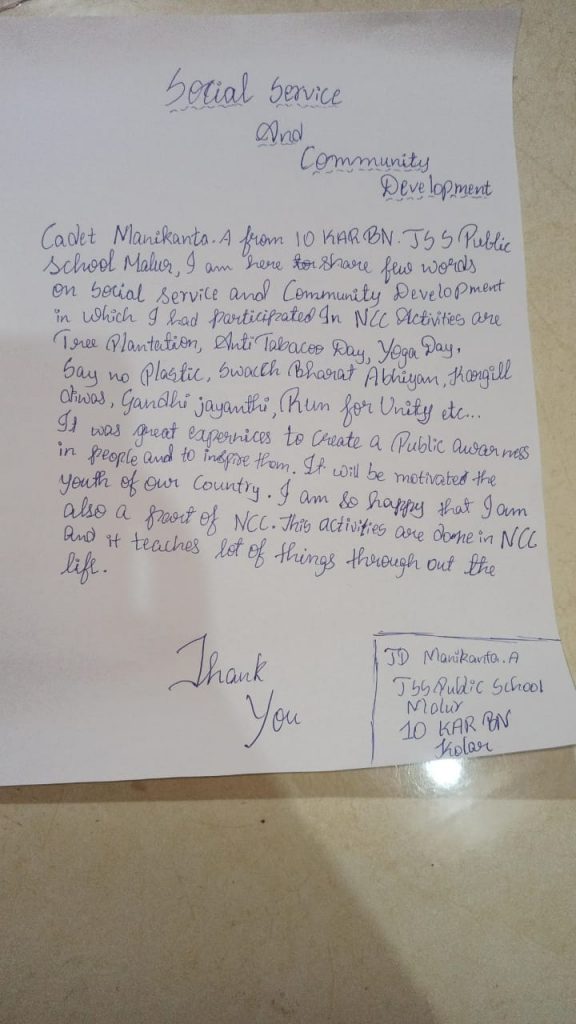 Social Service
And
Community
Development
Cadet Manikanta.A from 10 KAR BN. JSS Public
School Malur, I am here to share few words
on Social Service and Community Development
in which I had participated In NCC Activities are
Tree Plantation, Anti Tabacoo Day, Yoga Day,
Say no Plastic, Swacth Bharat Abhiyan, Kargill
diwas, Gandhi jayanthi, Run for Unity etc...
It was great expernices to create a Public awarness
in people and to inspire them. It will be motivated the
youth of our Country. I am so happy that I am
also a part of NCC. This activities are done in NCC
and it teaches lot of things through out the
life.
Thank
You
JD Manikanta.A
JSS Public School
Malur
10 KAR BN
Kolar